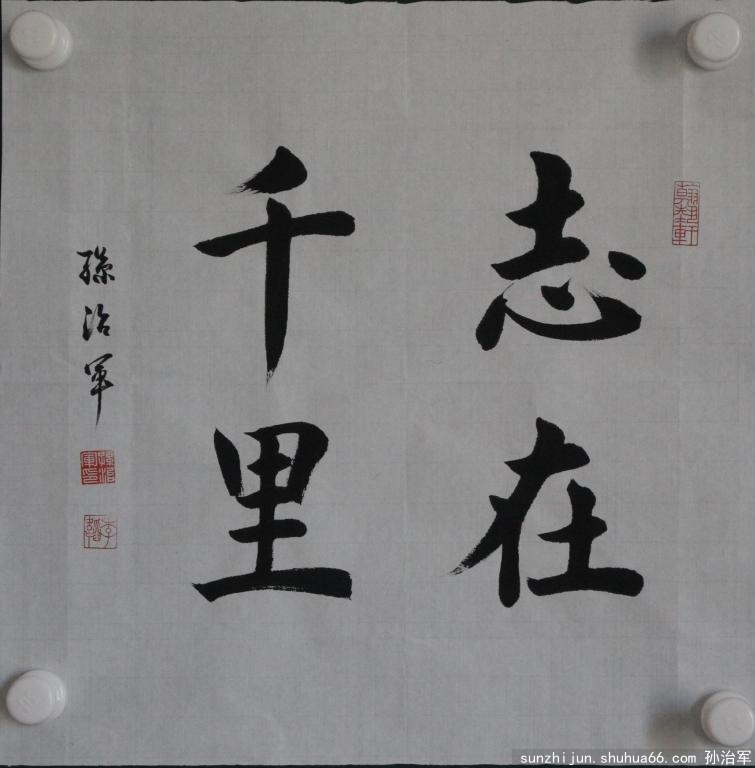 志在
千里
孫治军
翰墨軒
sunzhijun.shuhua66.com 孙治军